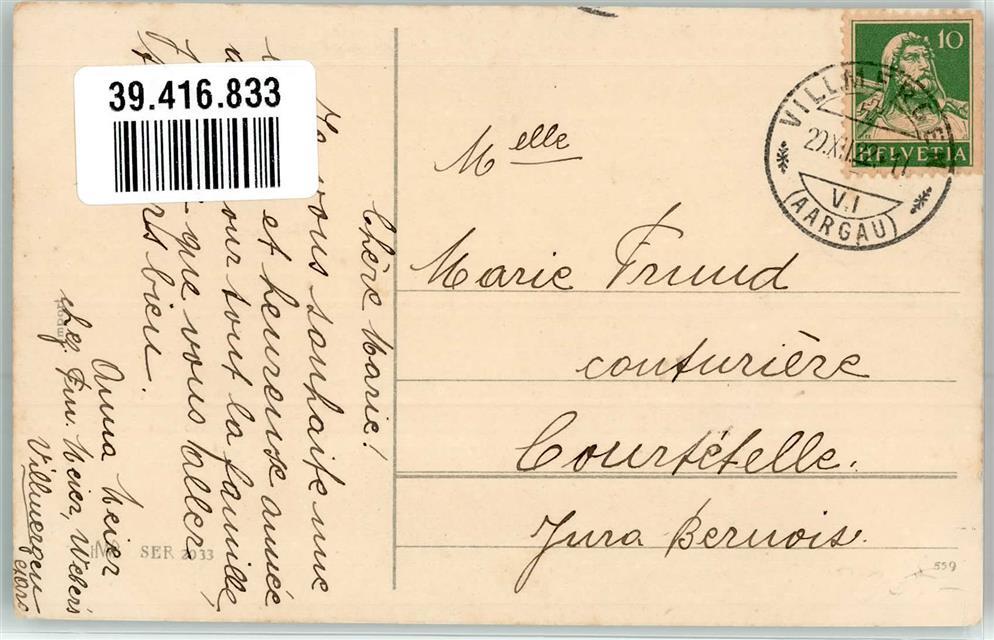 39.416.833
Chère Marie!
Je vous souhaite une
et heureuse année
pour tout la famille,
que vous aller
bien.
Anna Meier
Leg. Fun. Meier, Weber's
Villmergen
M SER 2033
Melle
Marie Frund
couturière
Courtételle.
Jura Bernois.
559
10
HELVETIA
VILLMERGEN
V.I
(AARGAU)